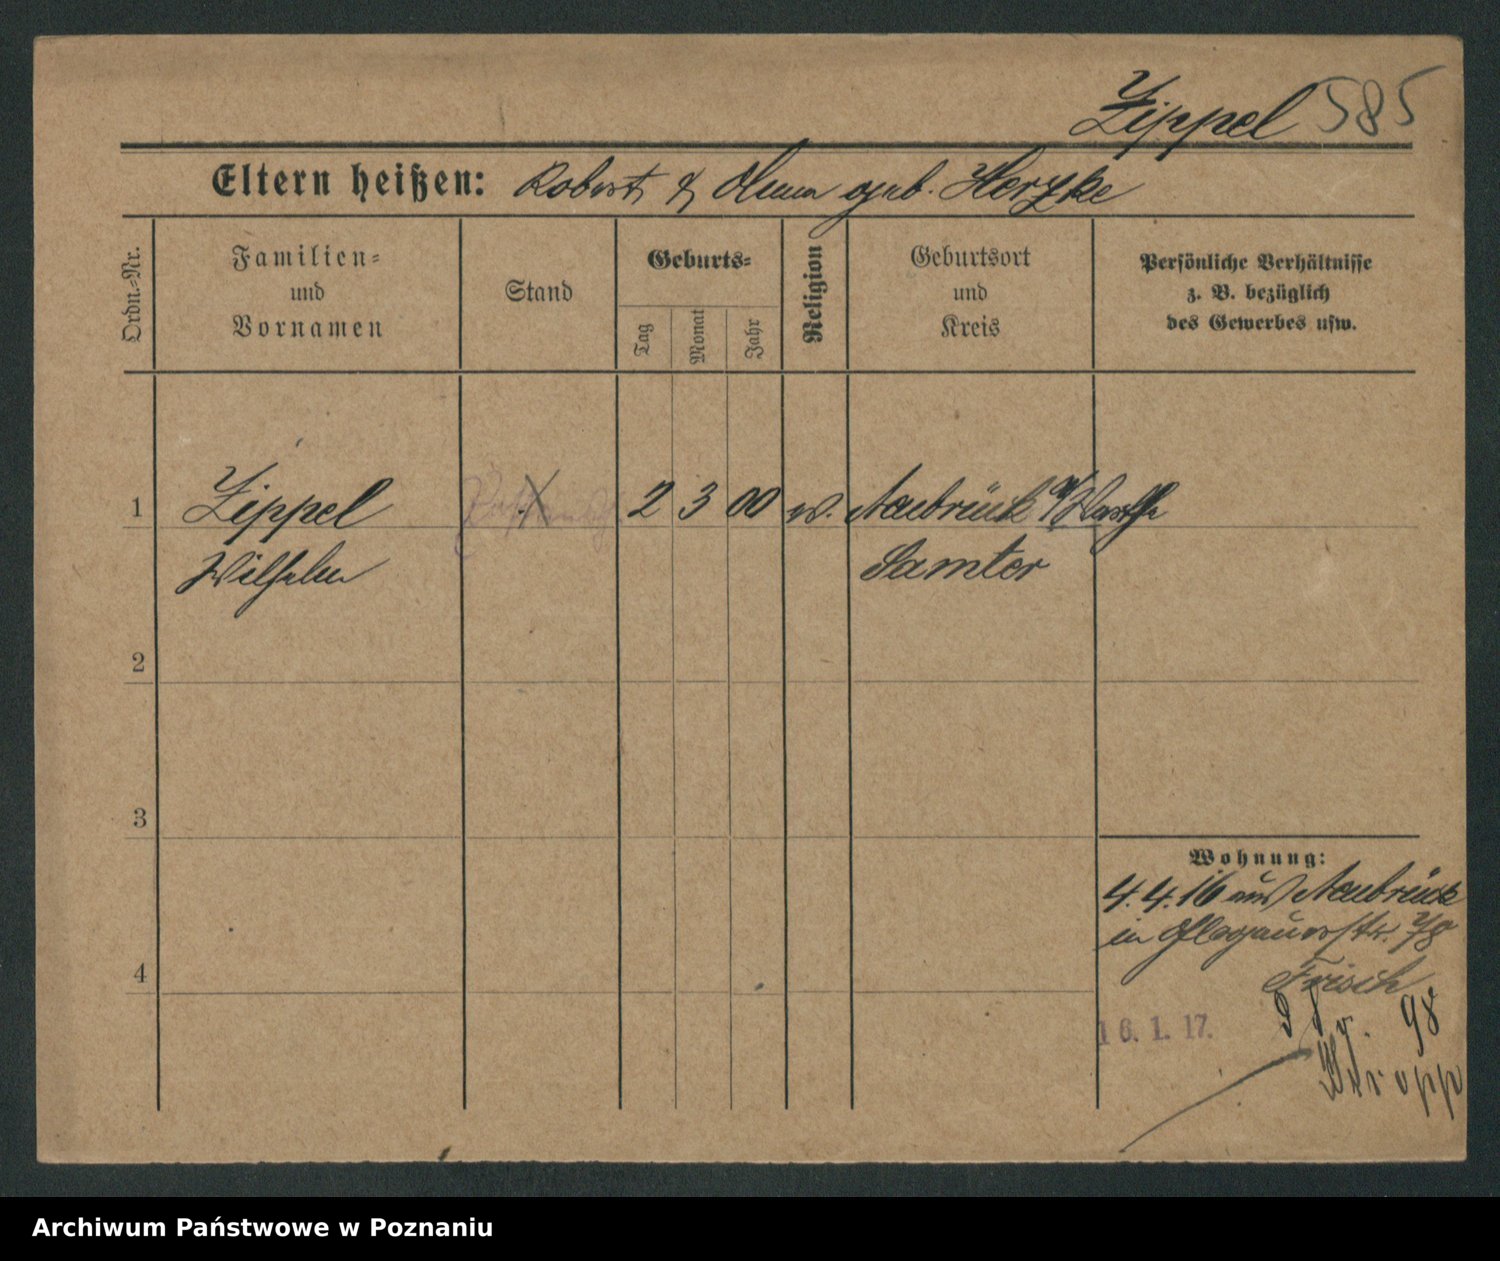 Zippel 585
Eltern heißen: Robert & Anna geb. Herzke
Ordn.-Nr.
Familien-
und
Vornamen
Stand
Geburts-
Tag
Monat
Jahr
Religion
Geburtsort
und
Kreis
Persönliche Verhältnisse
z. B. bezüglich
des Gewerbes usw.
1 Zippel 2 3 00 ev. Neubrück a/Warthe
Wilhelm Samter
2
3
Wohnung:
4.4.16 aus Neubrück
in Glogauerstr.
4
Frisch
16.1.17. 98
Archiwum Państwowe w Poznaniu